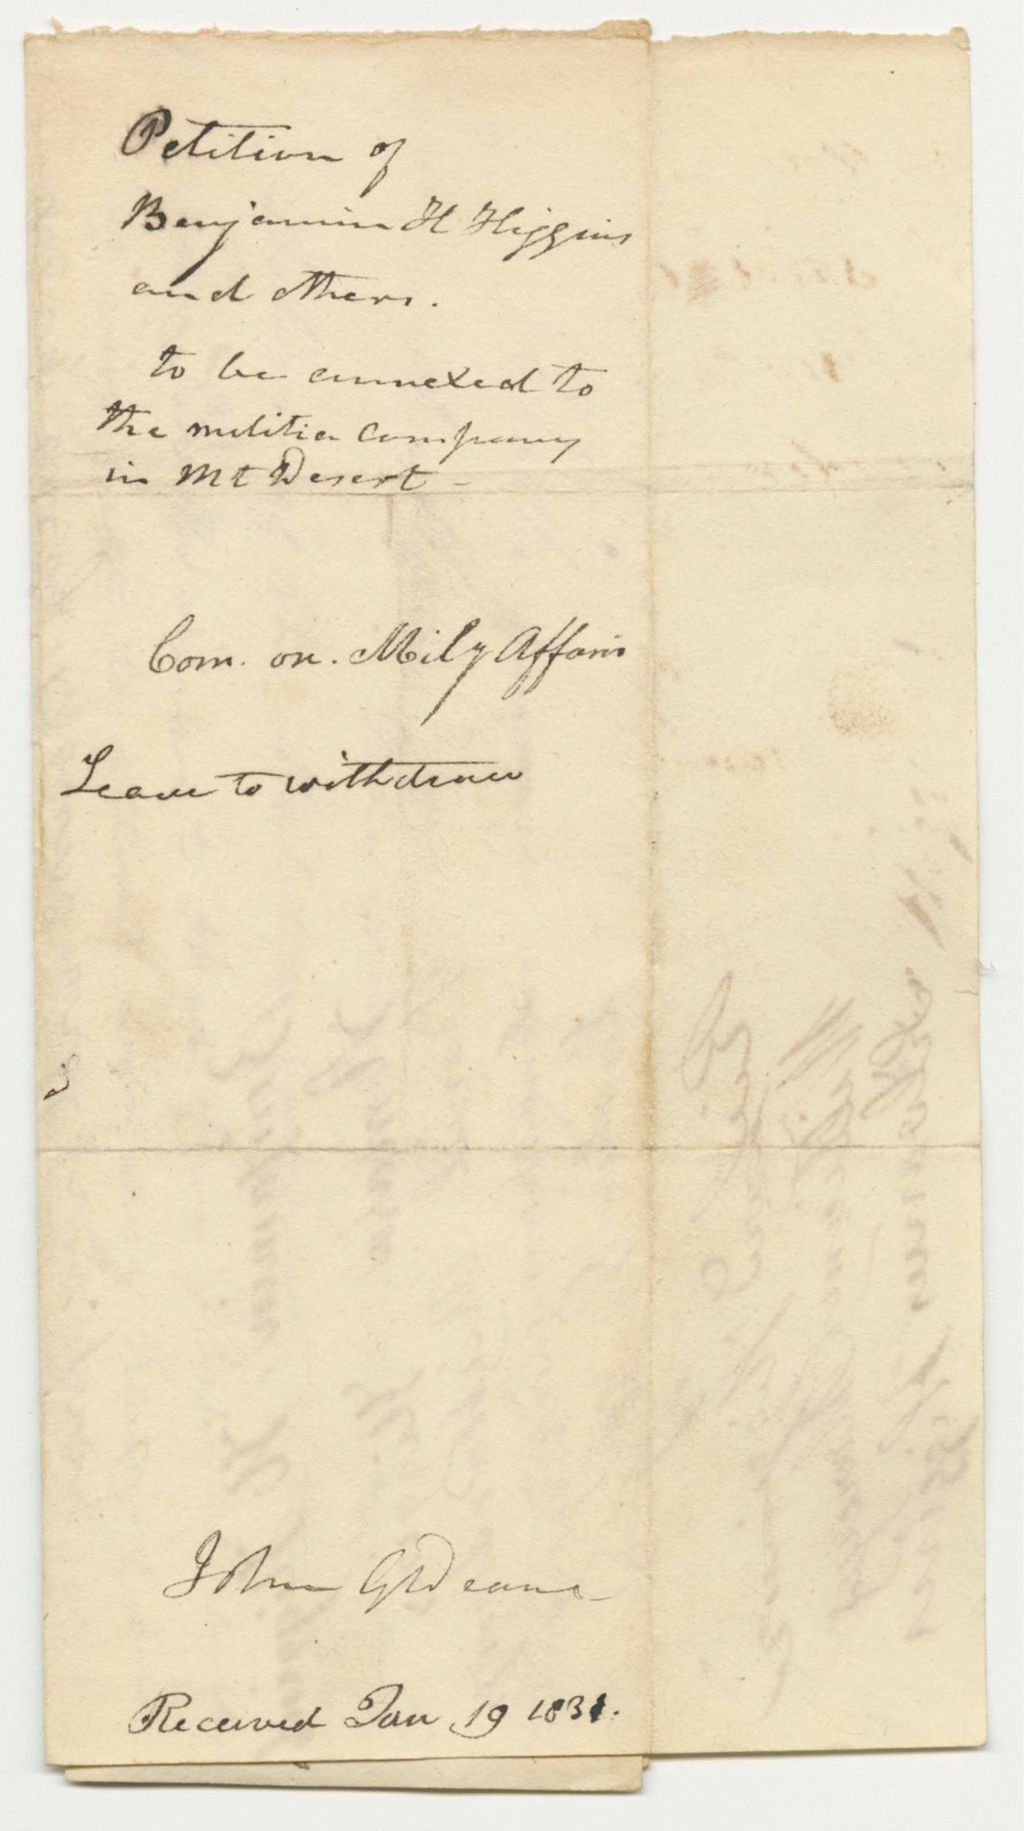 Petition of
Benjamin H Higgins
and others.
to be annexed to
the militia company
in Mt Desert -
Com. on. Mily Affairs
Leave to withdraw
John G Deane
Received Jan 19 1831.